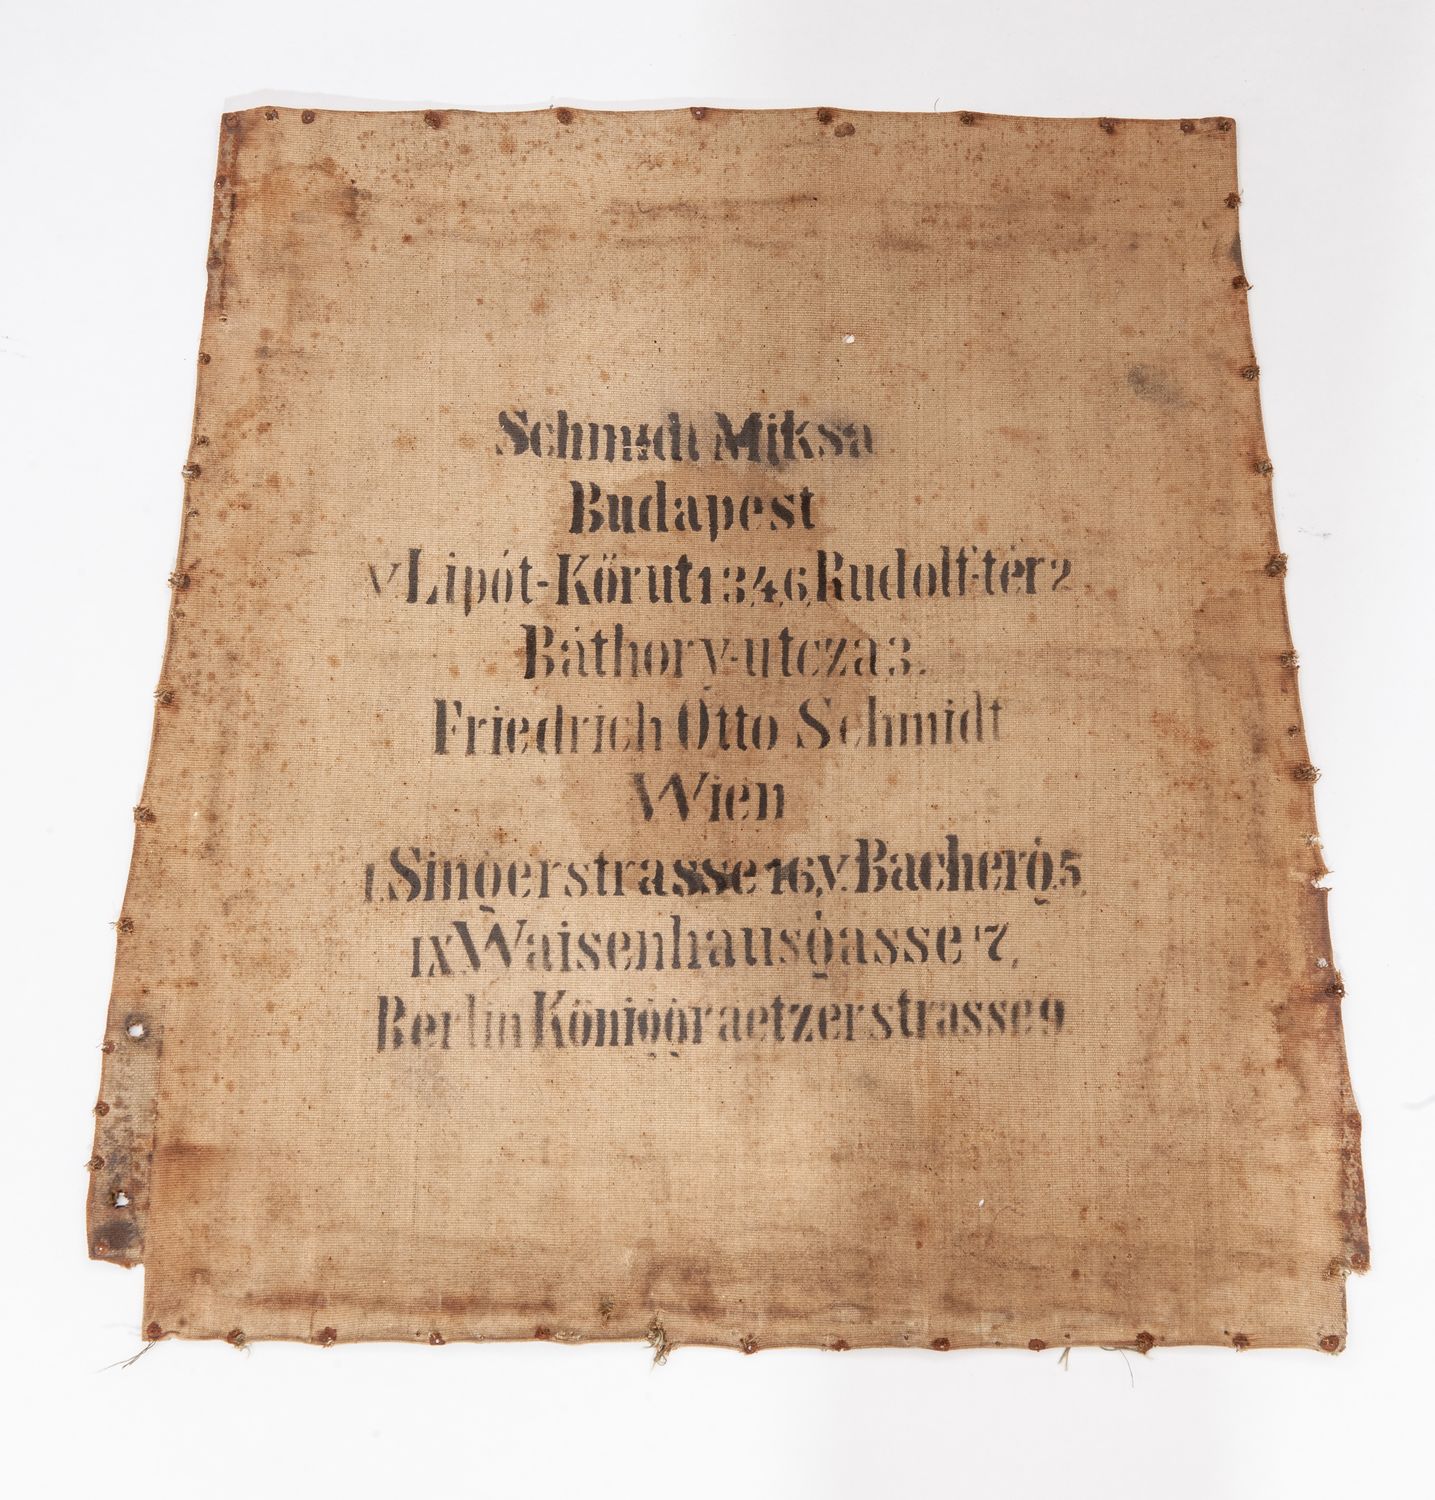 Schmidt Miksa
Budapest
V Lipót-Kőrut 1 3,4,6, Rudolf-tér 2
Báthory-utcza 3.
Friedrich Otto Schmidt
Wien
I. Singerstrasse 16, V. Bacherg. 5,
IX Waisenhausgasse 7,
Berlin Königgraetzerstrasse 9